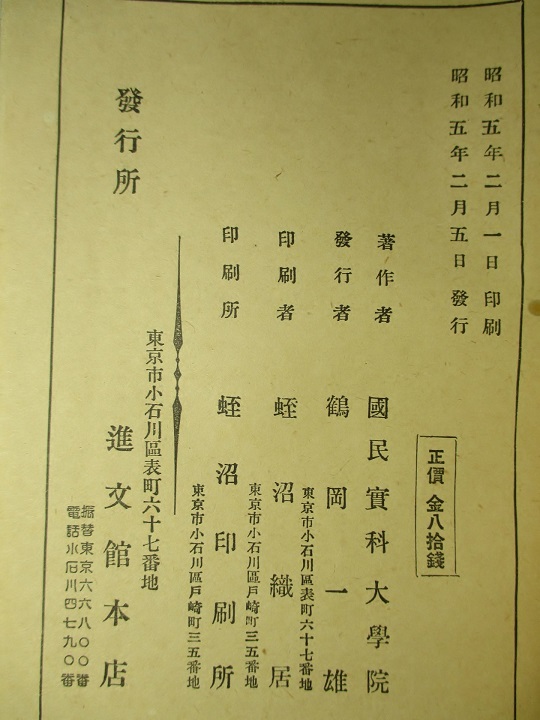 昭和五年二月一日印刷
昭和五年二月五日發行
正價 金八拾錢
著作者 國民實科大學院
東京市小石川區表町六十七番地
發行者 鶴岡一雄
東京市小石川區戸崎町三五番地
印刷者 蛭沼織居
東京市小石川區戸崎町三五番地
印刷所 蛭沼印刷所
東京市小石川區表町六十七番地
發行所 進文館本店
振替東京六六八〇〇番
電話小石川四七九〇番